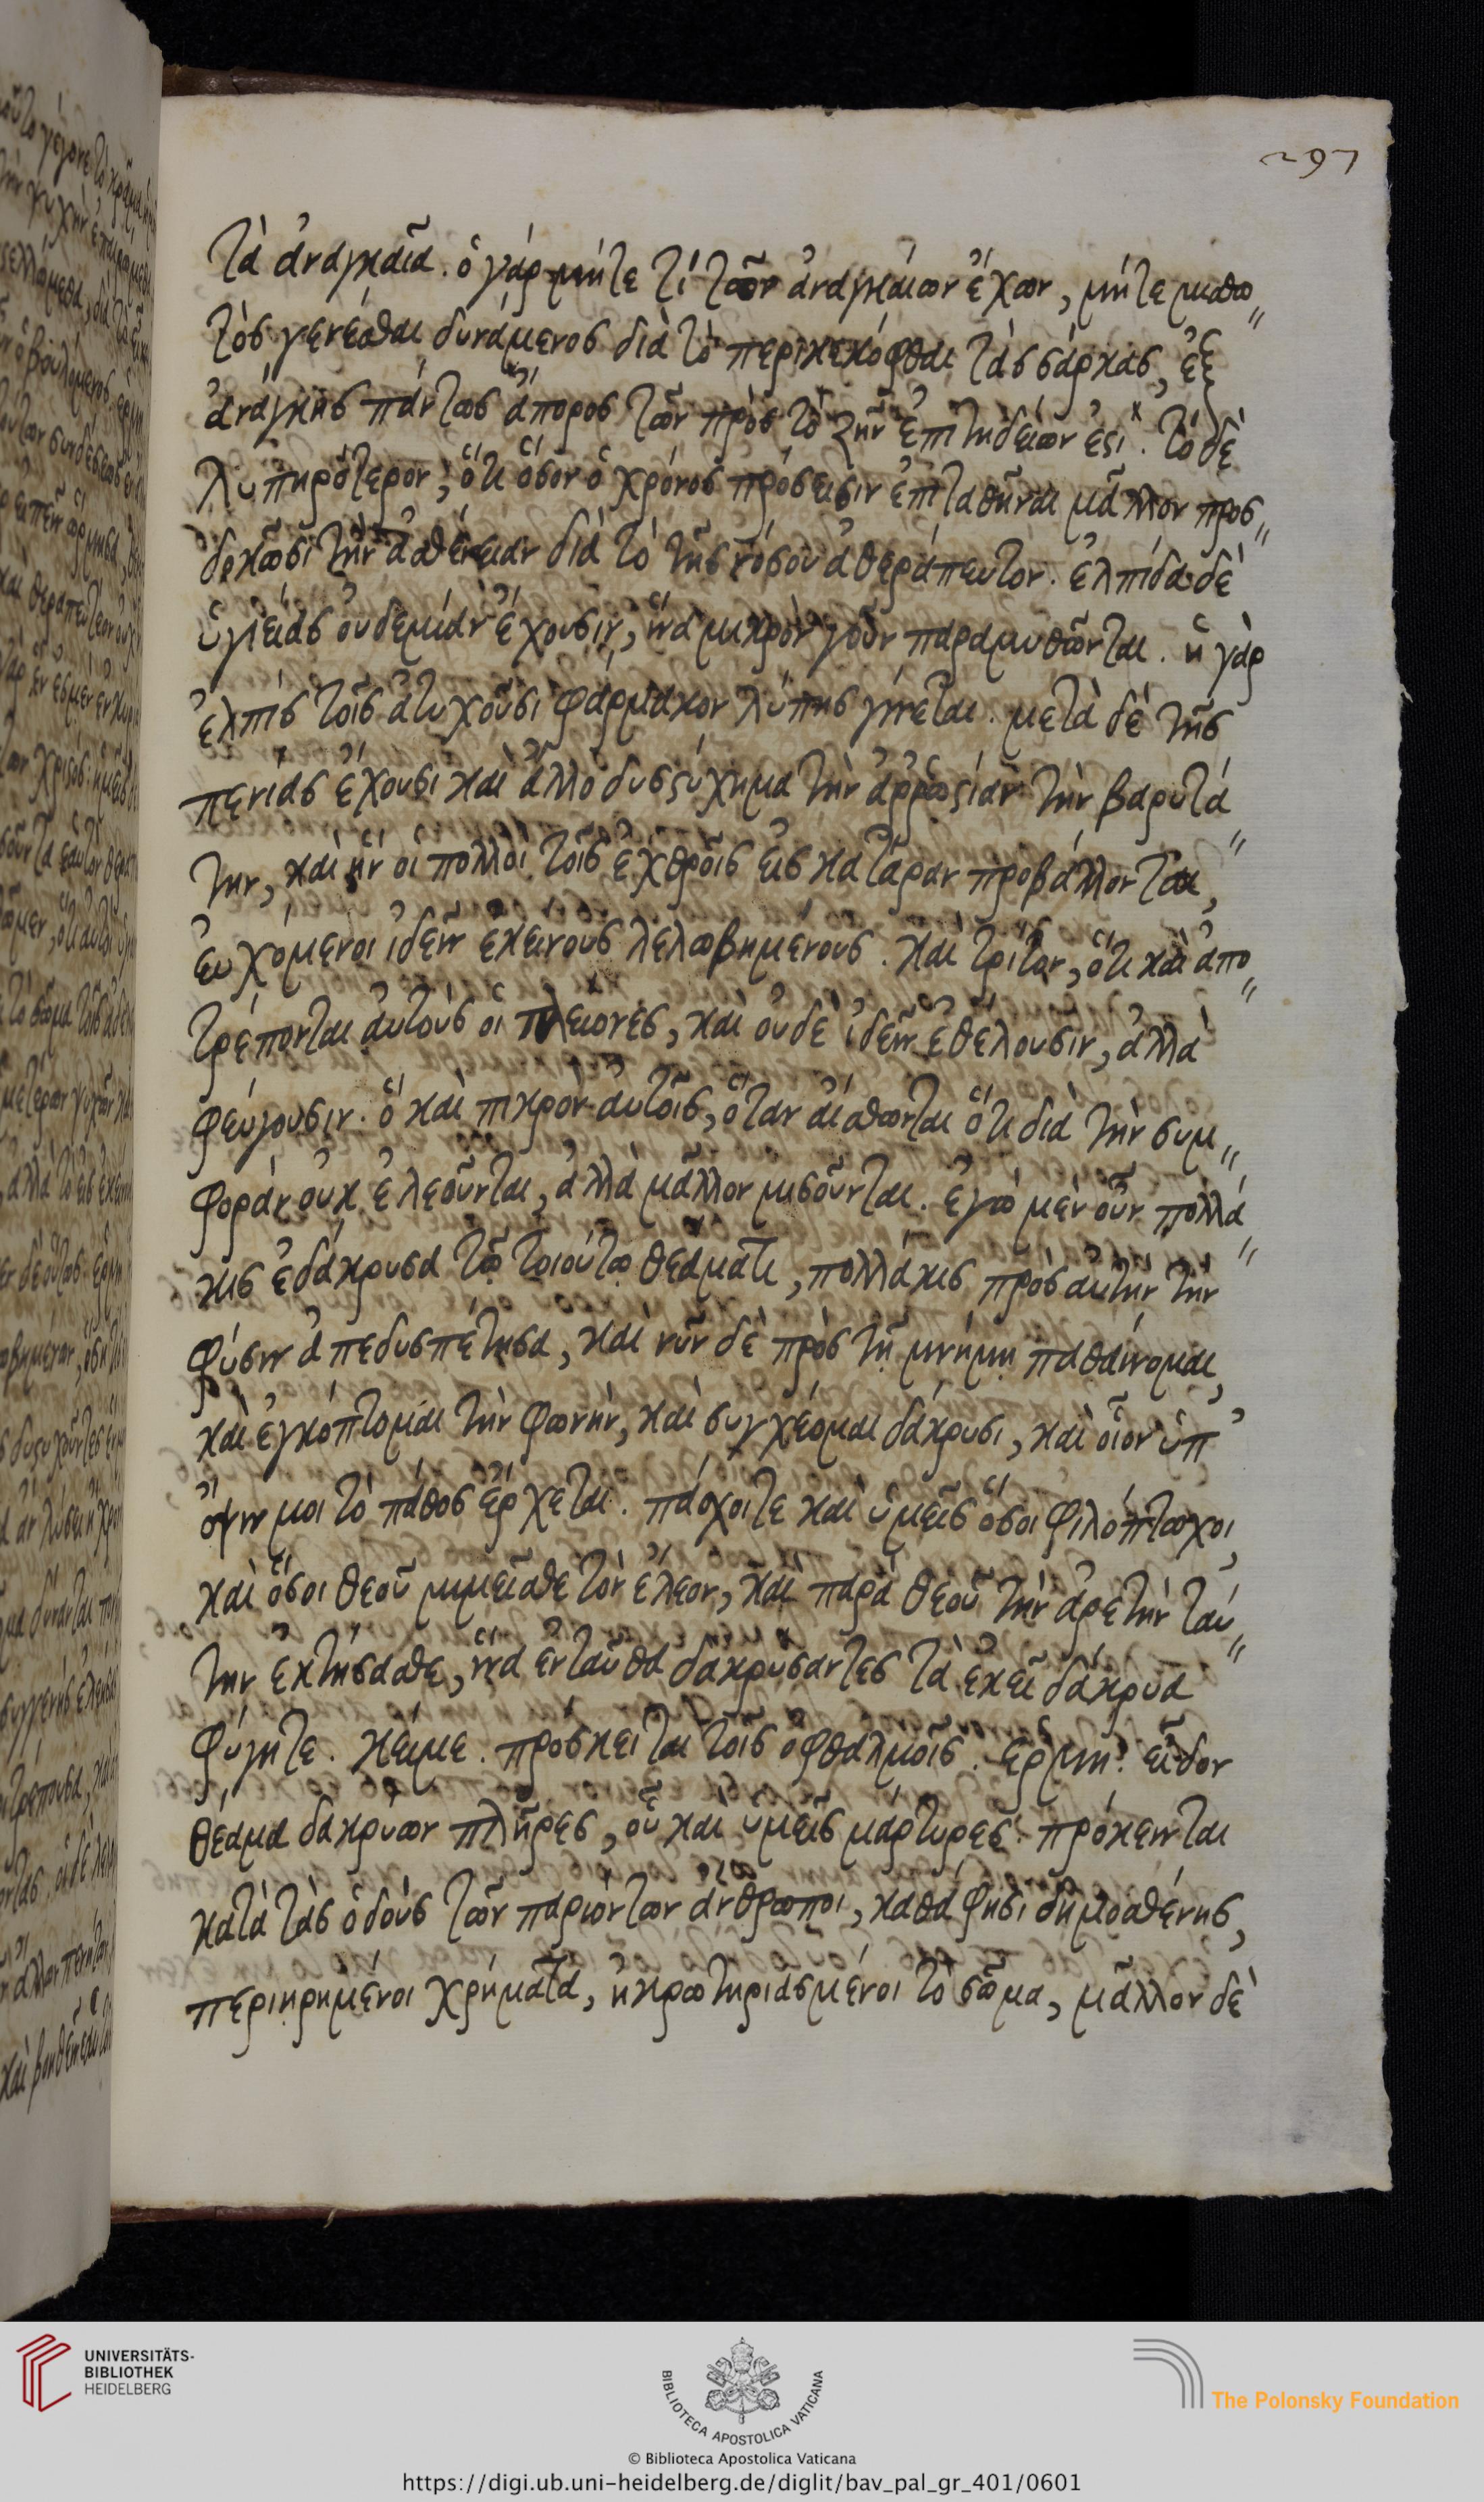 297
τὰ ἀναγκαῖα. ὁ γάρ μήτε τί τῶν ἀναγκαίων ἔχων, μήτε μισθω„
τὸς γενέσθαι δυνάμενος διὰ τὸ περικεκόφθαι τὰς σάρκας, ἐξ
ἀνάγκης πάντως ἄπορος τῶν πρὸς τὸ ζῆν ἐπιτηδείων ἐστί. τὸ δὲ
λυπηρότερον, ὅτι ὅσον ὁ χρόνος πρόσεισιν ἐπιταθῆναι μᾶλλον προσ„
δοκῶσι τὴν ἀσθένειαν διὰ τὸ τῆς νόσου ἀθεράπευτον. ἐλπίδα δὲ
ὑγιείας οὐδεμίαν ἔχουσιν, ἵνα μικρὸν γοῦν παραμυθῶνται. ἡ γὰρ
ἐλπίς τοῖς ἀτυχοῦσι φάρμακον λύπης γίνεται. μετὰ δὲ τῆς
πενίας ἔχουσι καὶ ἄλλο δυστύχημα τὴν ἀρρωστίαν τὴν βαρυτά„
την, καὶ ἣν οἱ πολλοὶ τοῖς ἐχθροῖς εἰς κατάραν προβάλλονται,
εὐχόμενοι ἰδεῖν ἐκείνους λελωβημένους. καὶ τρίτον, ὅτι καὶ ἀπο„
τρέπονται αὐτοὺς οἱ πλείονες, καὶ οὐδὲ ἰδεῖν ἐθέλουσιν, ἀλλὰ
φεύγουσιν. ὃ καὶ πικρὸν αὐτοῖς, ὅταν αἴσθωνται ὅτι διὰ τὴν συμ„
φορὰν οὐκ ἐλεοῦνται, ἀλλὰ μᾶλλον μισοῦνται. ἐγὼ μὲν οὖν πολλά„
κις ἐδάκρυσα τῷ τοιούτῳ θεάματι, πολλάκις πρὸς αὐτὴν τὴν
φύσιν ἀπεδυσπέτησα, καὶ νῦν δὲ πρὸς τῇ μνήμῃ παθαίνομαι,
καὶ ἐγκόπτομαι τὴν φωνήν, καὶ συγχέομαι δάκρυσι, καὶ οἷον ὑπ'
ὄψιν μοι τὸ πάθος ἔρχεται. πάσχοιτε καὶ ὑμεῖς ὅσοι φιλόπτωχοι,
καὶ ὅσοι θεοῦ μιμεῖσθε τὸν ἔλεον, καὶ παρὰ θεοῦ τὴν ἀρετὴν ταύ„
την ἐκτήσασθε, ἵνα ἐνταῦθα δακρύσαντες τὰ ἐκεῖ δάκρυα
φύγητε. κείμε. πρόσκειται τοῖς ὀφθαλμοῖς. ἑρμη. εἶδον
θέαμα δακρύων πλῆρες, οὗ καὶ ὑμεῖς μάρτυρες. πρόκεινται
κατὰ τὰς ὁδοὺς τῶν παριόντων ἄνθρωποι, καθά φησι δημοσθένης,
περιῃρημένοι χρήματα, ἠκρωτηριασμένοι τὸ σῶμα, μᾶλλον δὲ
UNIVERSITÄTS-
BIBLIOTHEK
HEIDELBERG
BIBLIOTECA APOSTOLICA VATICANA
The Polonsky Foundation
© Biblioteca Apostolica Vaticana
https://digi.ub.uni-heidelberg.de/diglit/bav_pal_gr_401/0601